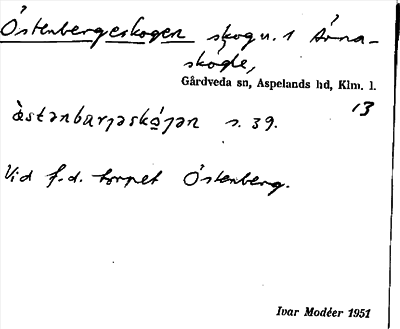 Östenbergeskogen skog n. 1 Árna-
skógle,
Gårdveda sn, Aspelands hd, Klm. l.
13
àstənbarjəskó̠jən s. 39.
Vid f.d. torpet Östenberg.
Ivar Modéer 1951